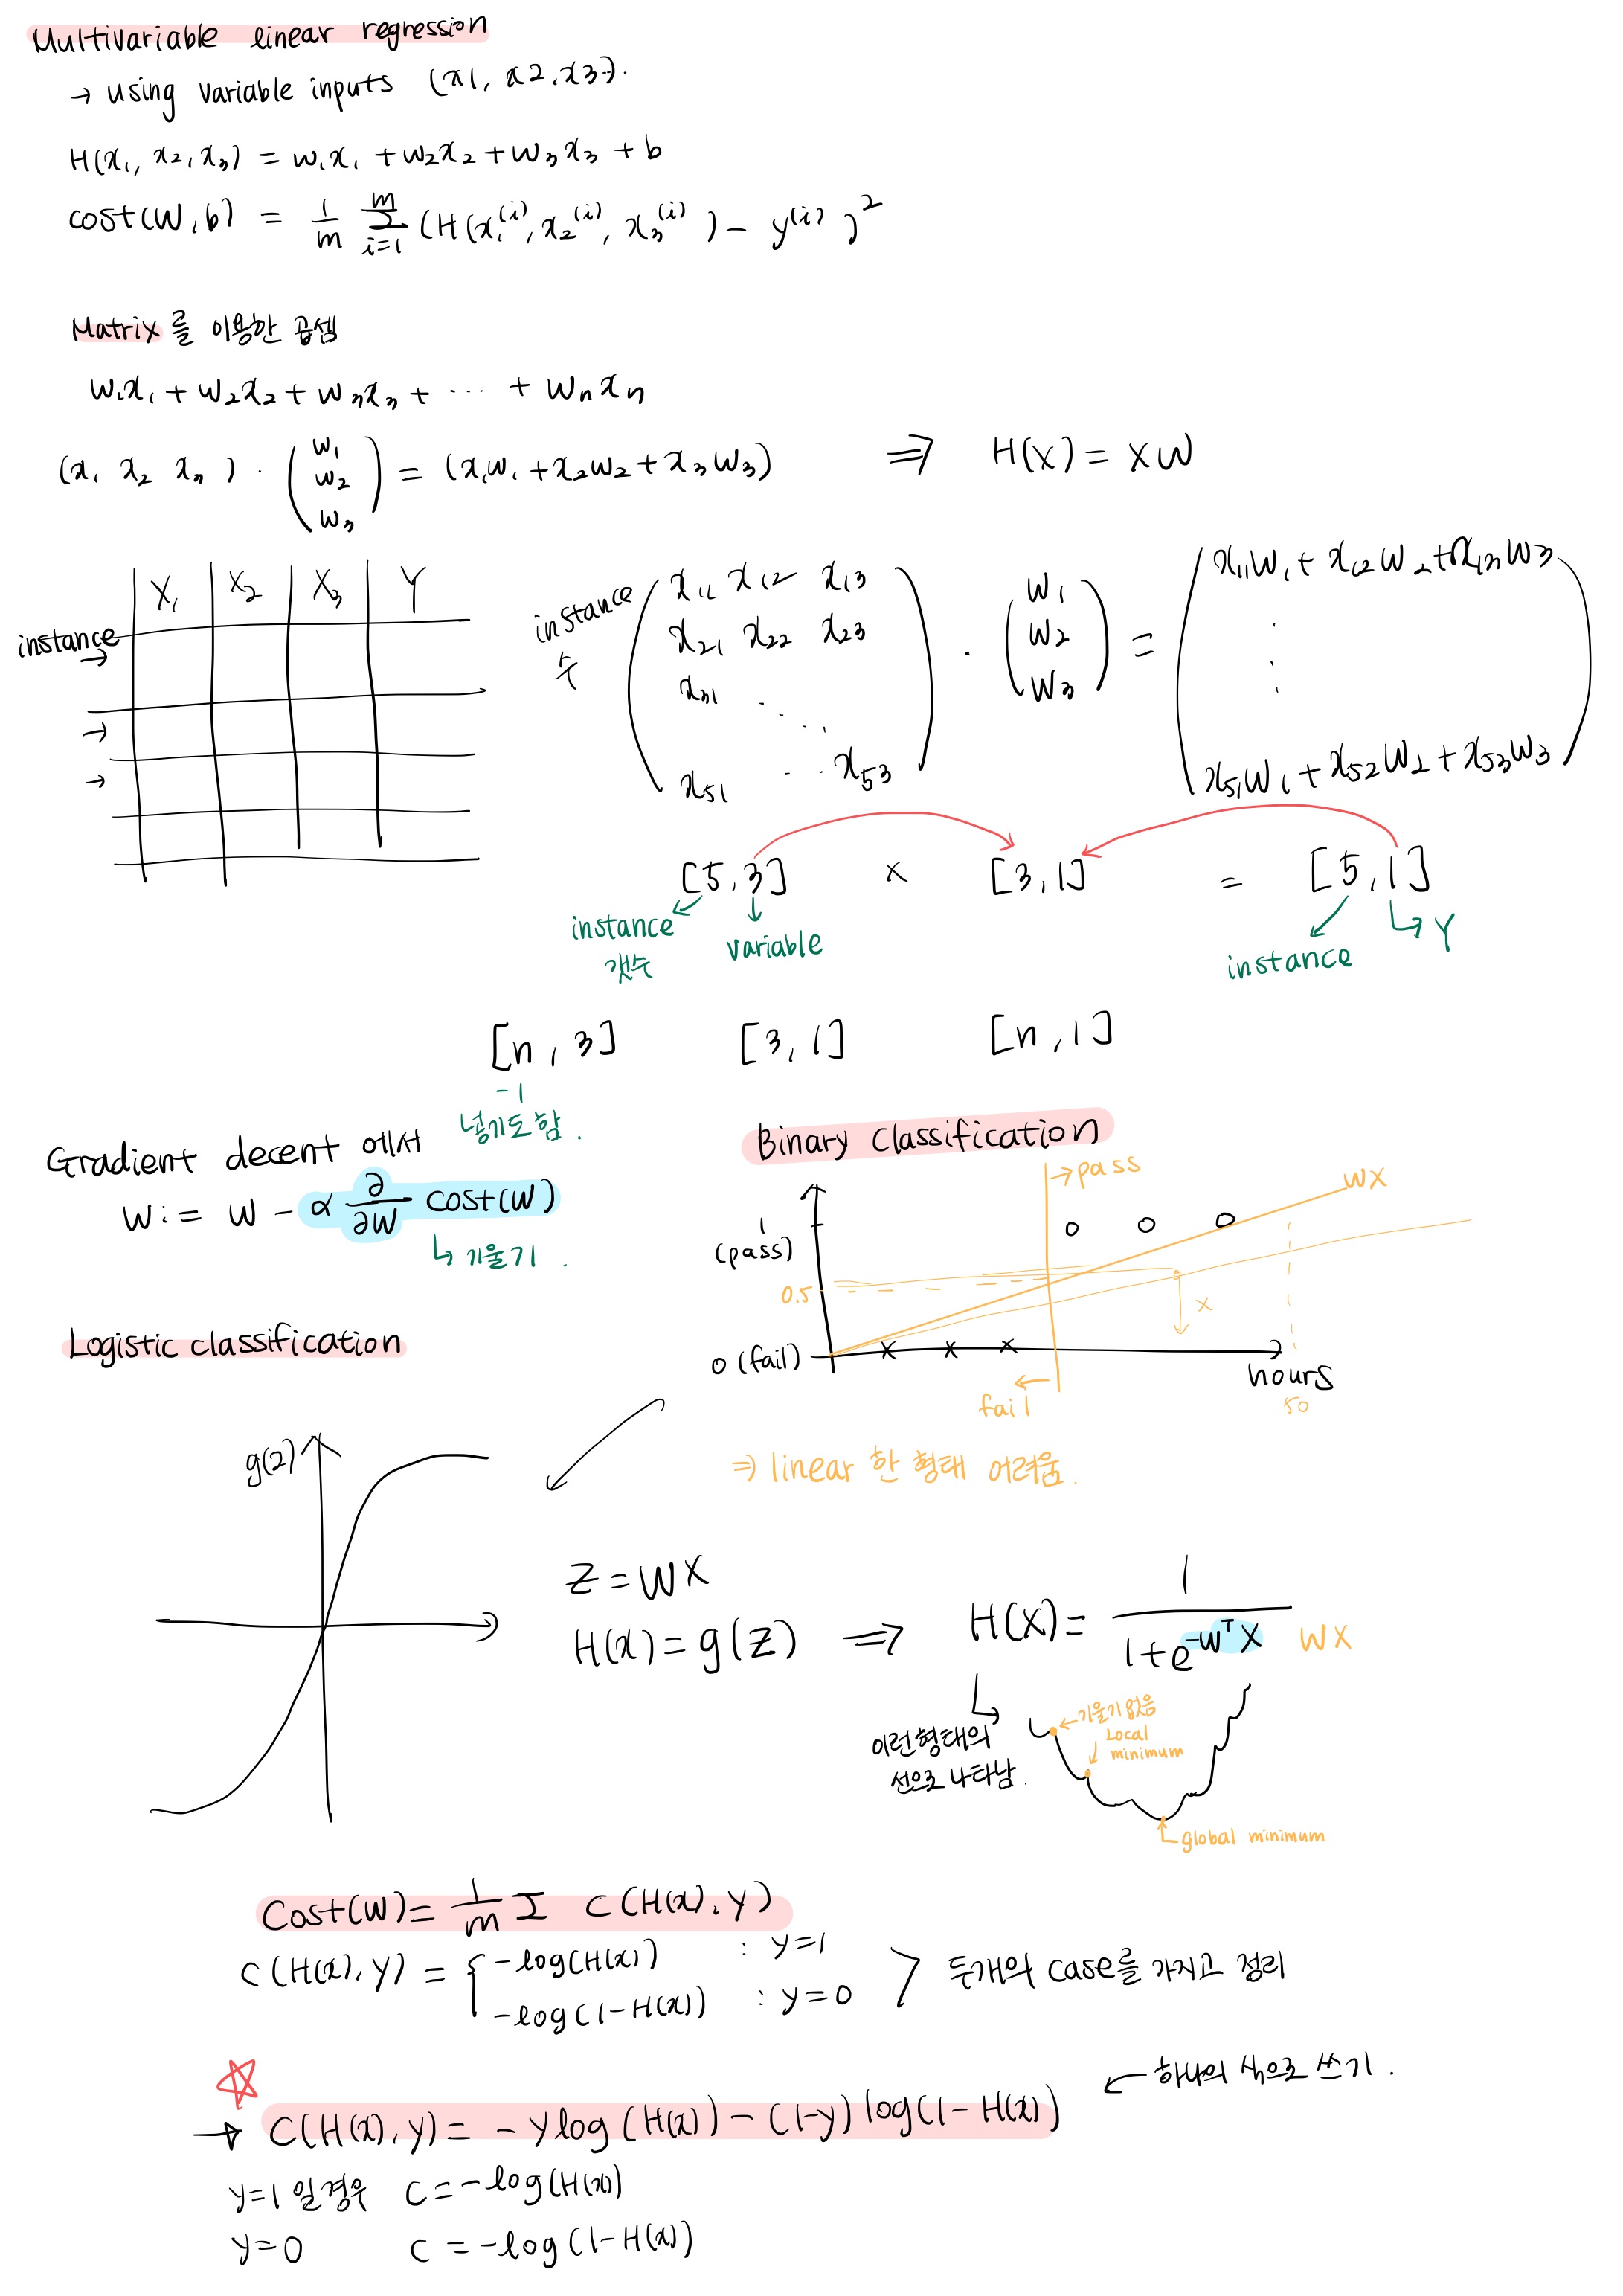 Multivariable linear regression
→ using variable inputs (x1, x2, x3).
H(x₁, x₂, x₃) = w₁x₁ + w₂x₂ + w₃x₃ + b
cost(W, b) = 1/m Σ_{i=1}^{m} (H(x₁⁽ⁱ⁾, x₂⁽ⁱ⁾, x₃⁽ⁱ⁾) - y⁽ⁱ⁾)²
Matrix를 이용한 곱셈
w₁x₁ + w₂x₂ + w₃x₃ + ... + wₙxₙ
(x₁ x₂ x₃) · (w₁ w₂ w₃) = (x₁w₁ + x₂w₂ + x₃w₃) ⇒ H(X) = XW
X₁ X₂ X₃ Y
instance →
→
→
instance 수
x₁₁ x₁₂ x₁₃
x₂₁ x₂₂ x₂₃
x₃₁ ....
x₅₁ .. x₅₃
·
w₁
w₂
w₃
=
x₁₁w₁ + x₁₂w₂ + x₁₃w₃
x₅₁w₁ + x₅₂w₂ + x₅₃w₃
[5, 3] × [3, 1] = [5, 1]
instance 갯수
variable
instance
Y
[n, 3] [3, 1] [n, 1]
-1
넣기도 함.
Gradient decent 에서
W := W - α ∂/∂W cost(W)
↳ 기울기.
Binary Classification
→ pass
WX
1
(pass)
0.5
x
0 (fail)
hours
50
← fail
⇒ linear 한 형태 어려움.
Logistic classification
g(z)
Z = WX
H(x) = g(z) ⇒ H(X) = 1/(1+e^{-WᵀX}) WX
이런 형태의
선으로 나타남.
← 기울기 없음
Local
minimum
global minimum
Cost(W) = 1/m Σ C(H(x), y)
C(H(x), y) = { -log(H(x)) : y=1
-log(1-H(x)) : y=0
> 두개의 case를 가지고 정리
← 하나의 식으로 쓰기.
→ C(H(x), y) = -ylog(H(x)) - (1-y)log(1-H(x))
y=1 일경우 C = -log(H(x))
y=0 C = -log(1-H(x))